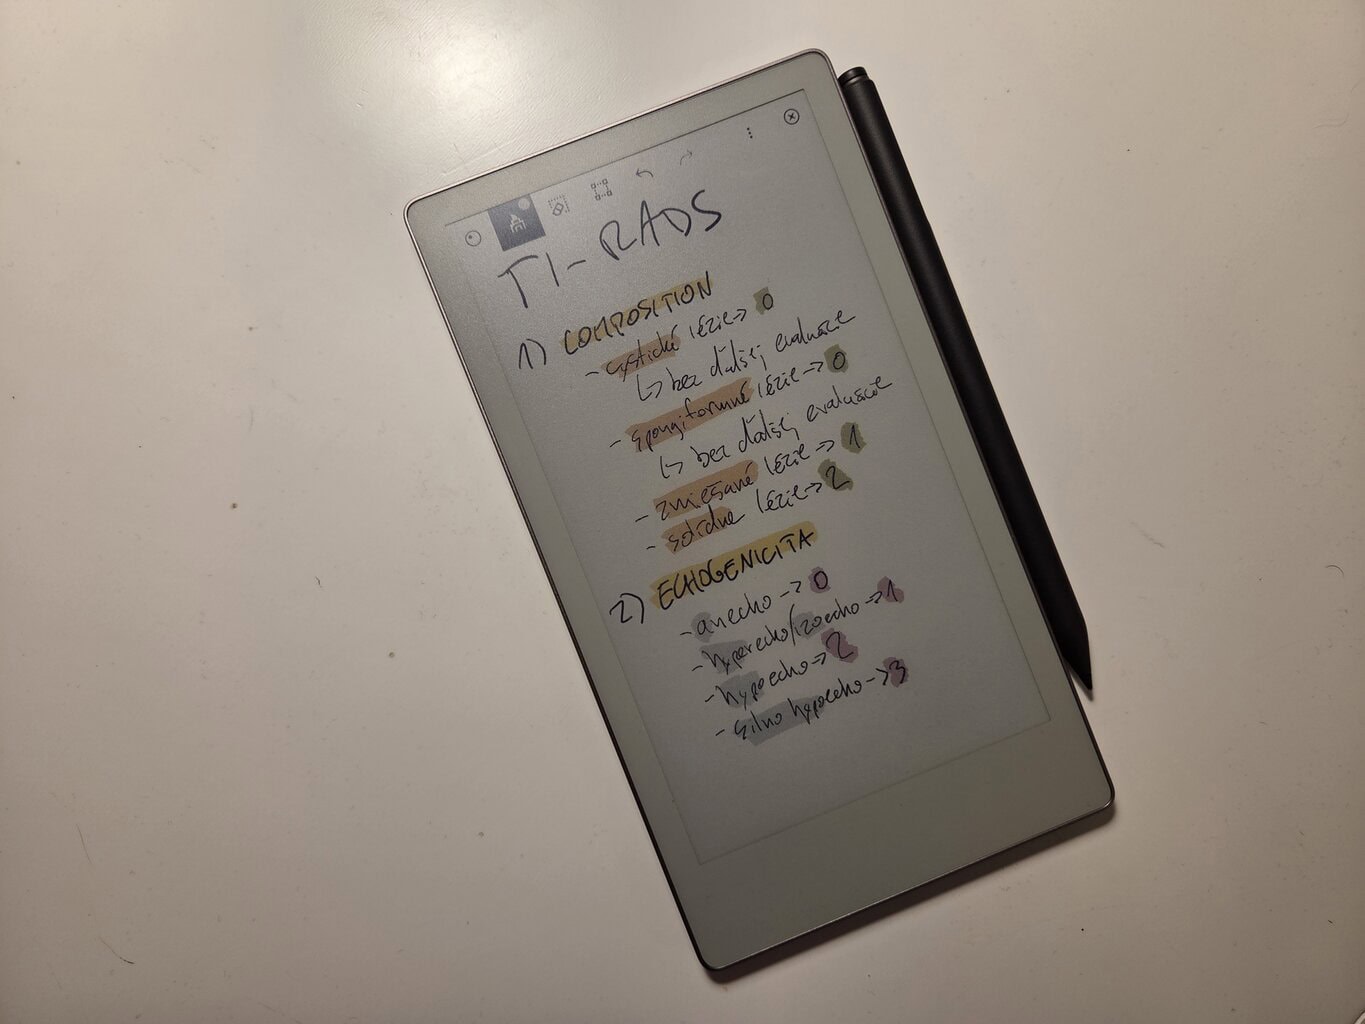 TI-RADS
1) COMPOSITION
- cystické lézie → 0
↳ bez ďalšej evaluácie
- spongiformné lézie → 0
↳ bez ďalšej evaluácie
- zmiešané lézie → 1
- solídne lézie → 2
2) ECHOGENICITA
- anecho → 0
- hyperecho/izoecho → 1
- hypoecho → 2
- silno hypoecho → 3